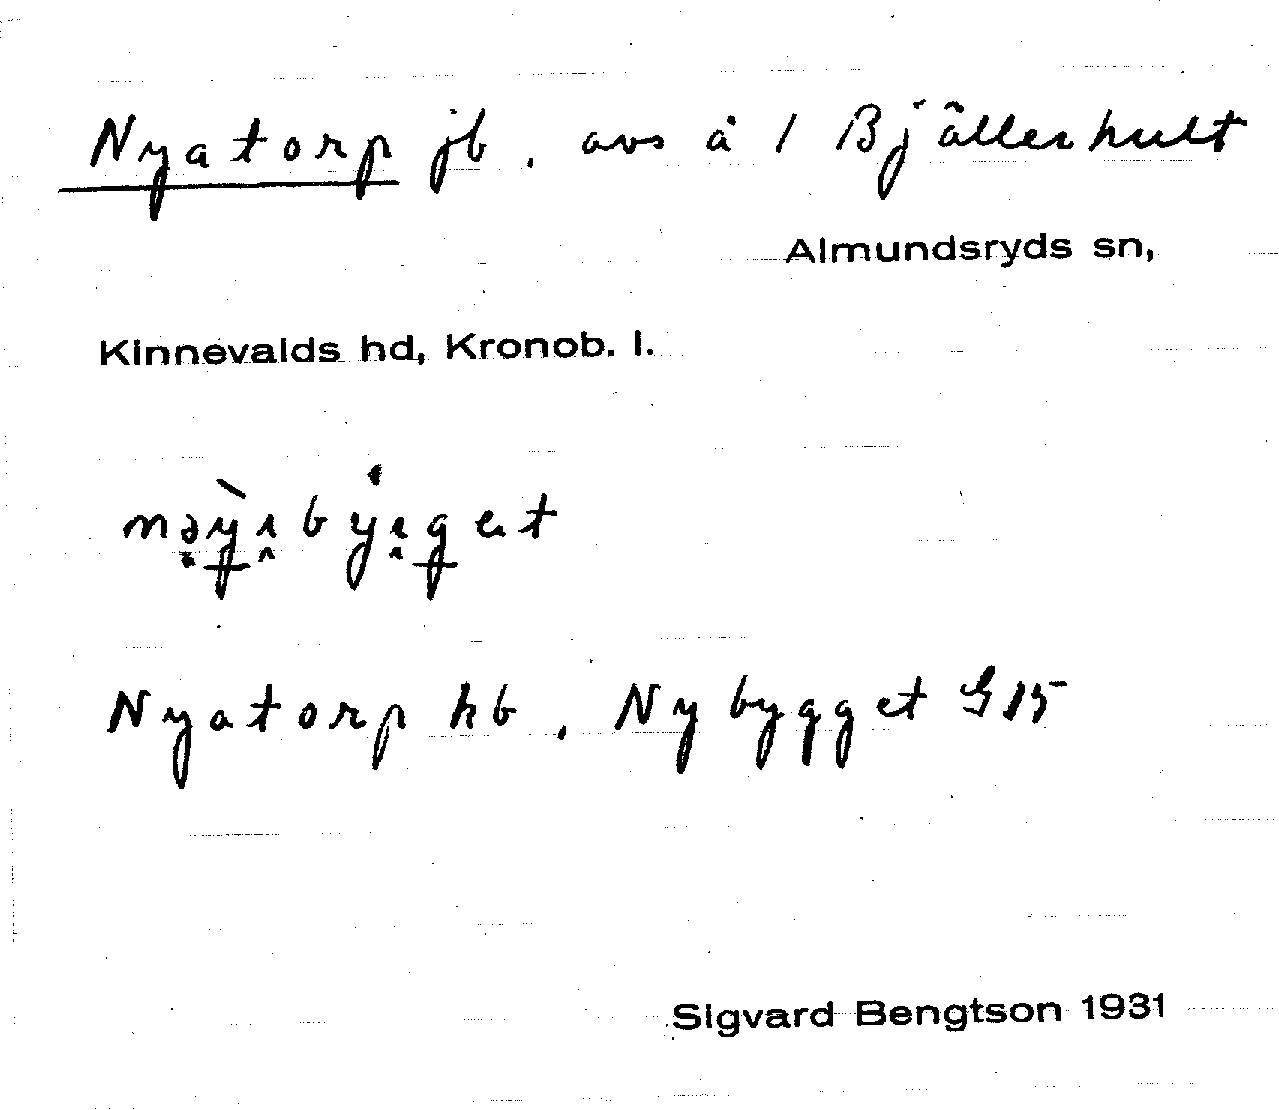 Nyatorp jb. avs å 1 Bjällerhult
Almundsryds sn,
Kinnevalds hd, Kronob. l.
Nyatorp hb. Nybygget G 15
Sigvard Bengtson 1931